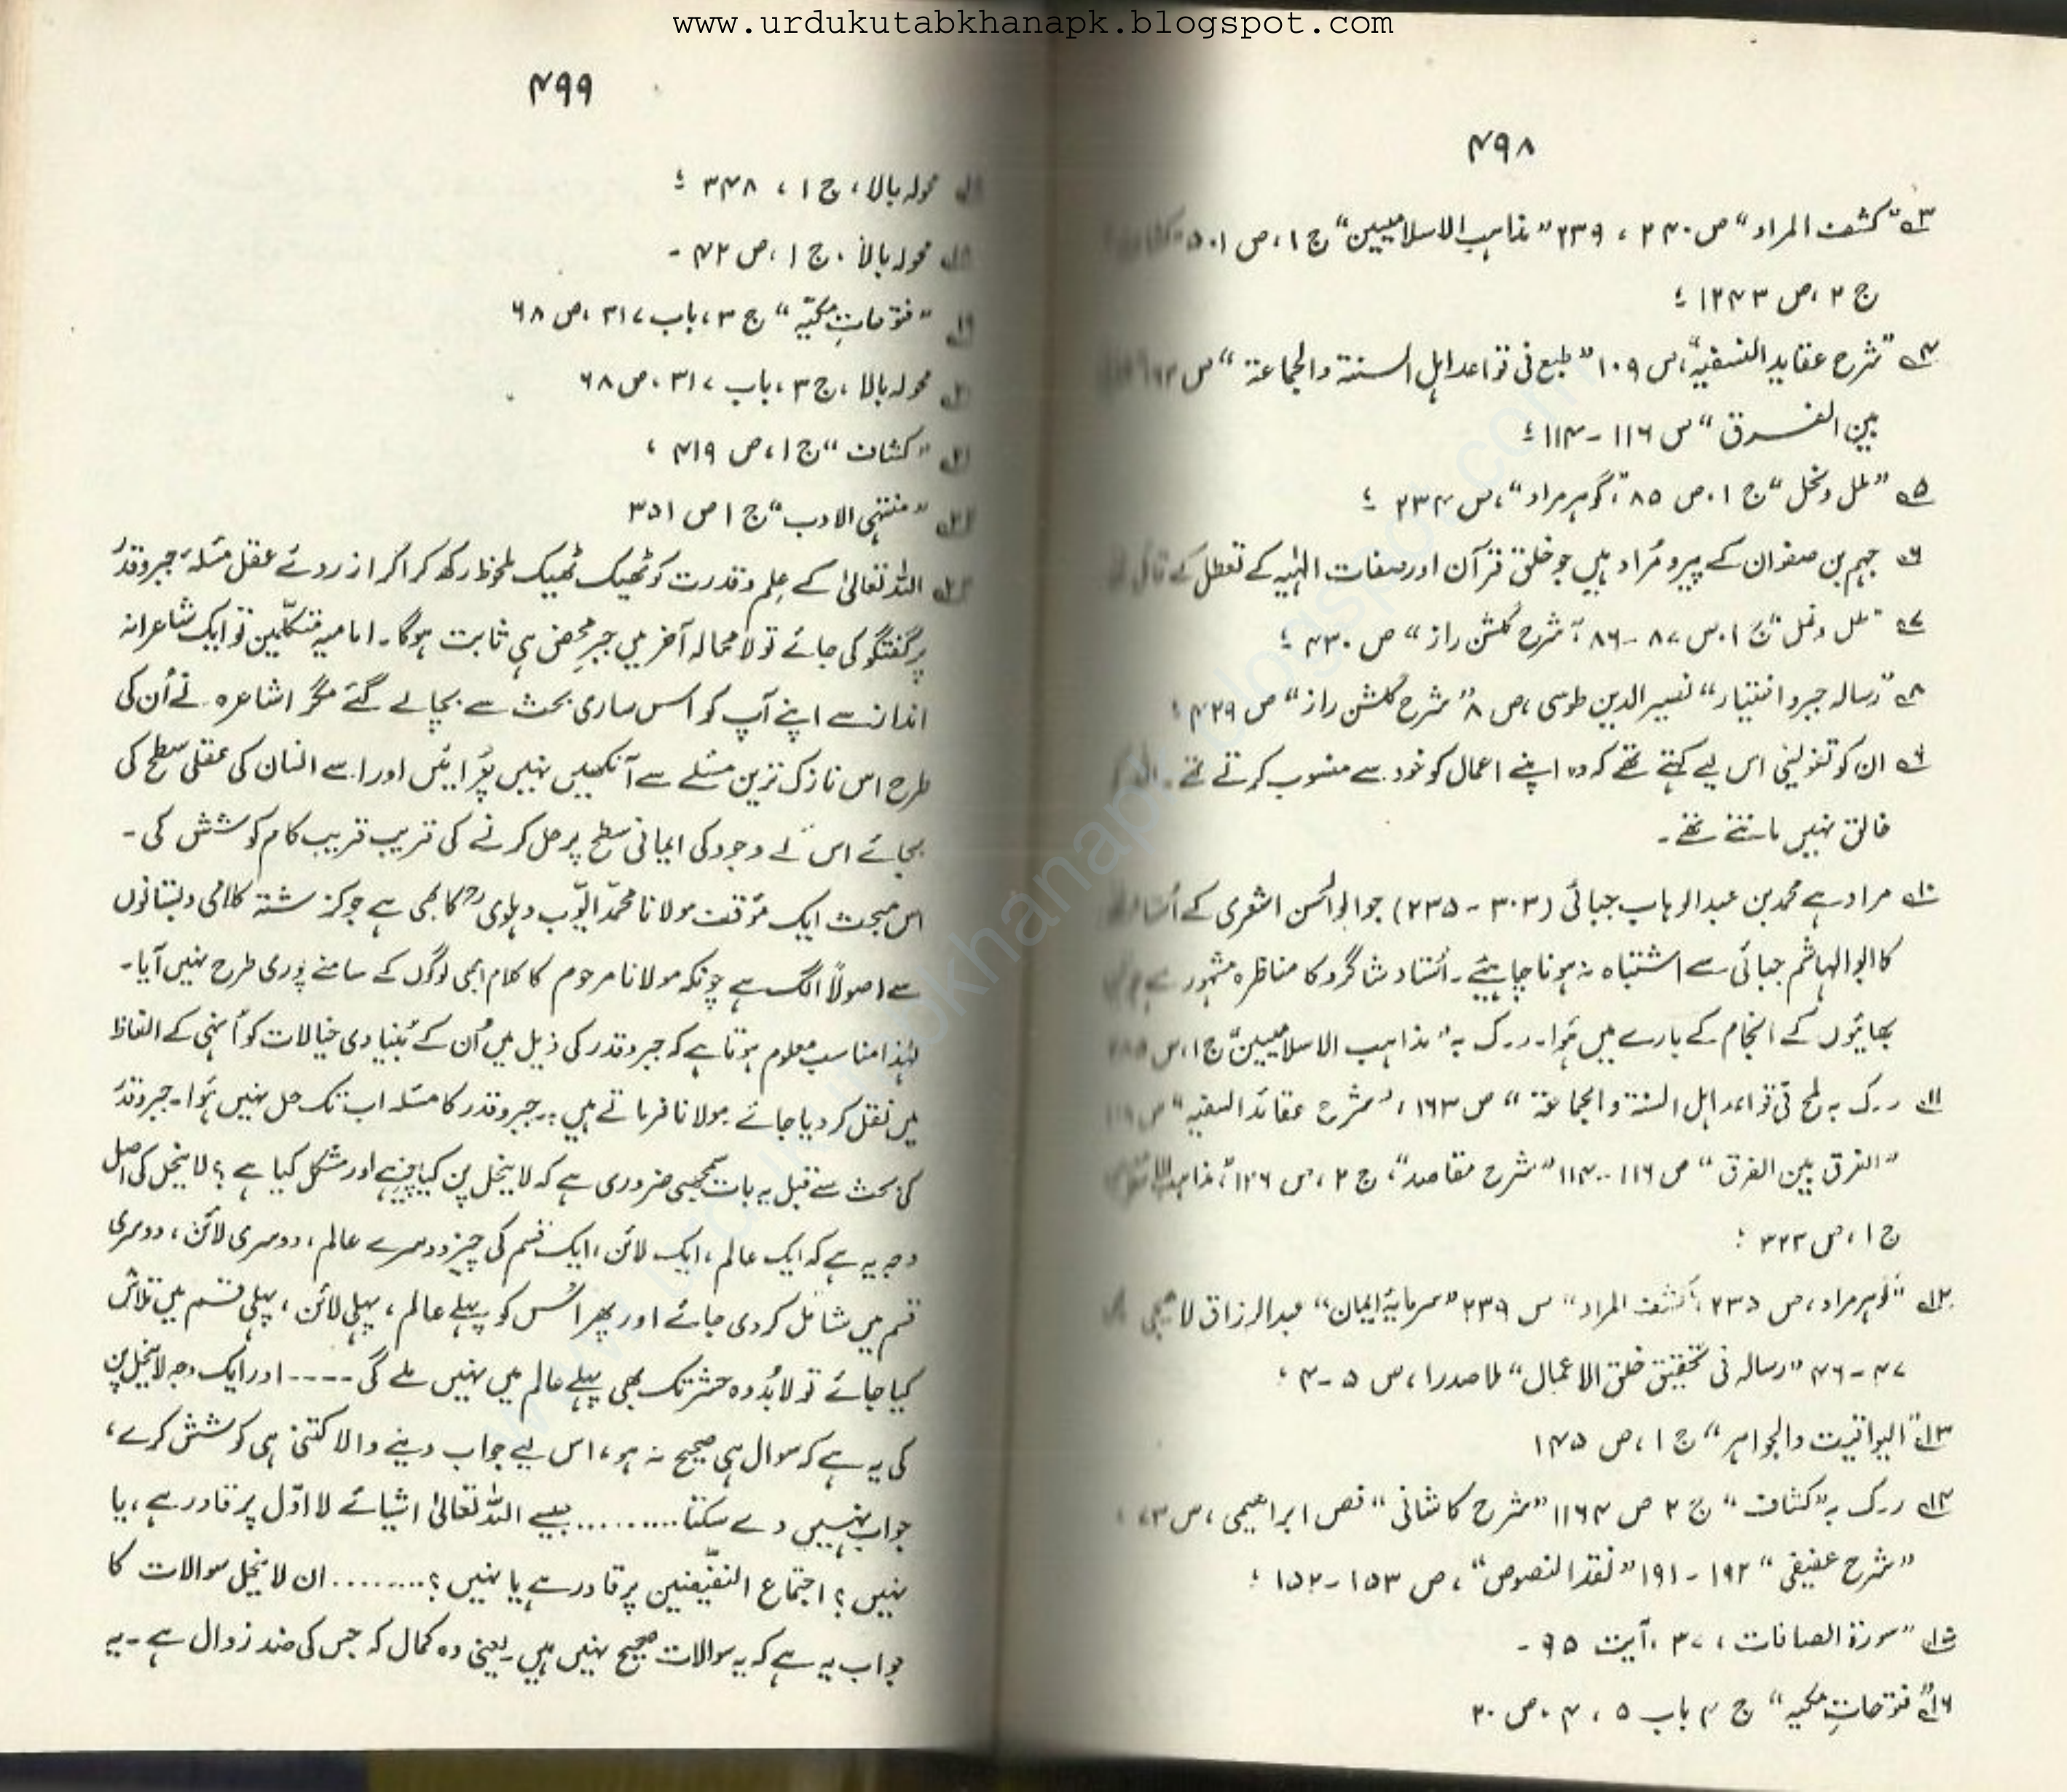 www.urdukutabkhanapk.blogspot.com
۴۹۸
۳ "کشف المراد" ص ۲۴۰ ، ۲۳۹ "مذاہب الاسلامیین" ج ۱، ص ۵۰۱
ج ۲، ص ۱۲۴۳ ؛
۴ "شرح عقاید النسفیہ"، ص ۱۰۹ "طبع فی قواعد اہل السنۃ والجماعۃ" ص
بین الفرق" ص ۱۱۶ - ۱۱۴ ؛
۵ "ملل و نحل" ج ۱، ص ۸۵ "، گوہر مراد"، ص ۲۳۴ ؛
۶ جہم بن صفوان کے پیرو مُراد ہیں جو خلقِ قرآن اور صفات الٰہیہ کے تعطل کے قائل
۷ "ملل و نحل" ج ۱، ص ۸۷ - ۸۶ "، شرح گلشن راز" ص ۴۳۰ ؛
۸ "رسالہ جبر و اختیار" نصیر الدین طوسی، ص ۸ "شرح گلشن راز" ص ۴۲۹ ؛
۹ ان کو تفویضی اس لیے کہتے تھے کہ وہ اپنے اعمال کو خود سے منسوب کرتے تھے۔ اللہ کو
خالق نہیں مانتے تھے۔
۱۰ مراد ہے محمد بن عبدالوہاب جبائی (۳۰۳ - ۲۳۵) جو ابوالحسن اشعری کے اُستاد
کا ابوالہاشم جبائی سے اشتباہ نہ ہونا چاہیئے۔ اُستاد شاگرد کا مناظرہ مشہور ہے
بھائیوں کے انجام کے بارے میں ہُوا۔ ر۔ک بہ "مذاہب الاسلامیین" ج ۱، ص
۱۱ ر۔ک بہ لمح فی قواعد اہل السنۃ والجماعۃ" ص ۱۶۳ ، "شرح عقائد النسفیہ" ص
"الفرق بین الفرق" ص ۱۱۶ - ۱۱۴ "شرح مقاصد"، ج ۲، ص ۱۲۶ "،
ج ۱، ص ۳۲۳ ؛
۱۲ "گوہر مراد، ص ۲۳۵ "، کشف المراد" ص ۲۳۹ "سرمایۂ ایمان" عبدالرزاق لاہیجی
۴۷ - ۴۶ "رسالہ فی تحقیق خلق الاعمال" ملا صدرا، ص ۵ - ۴ ؛
۱۳ "الیواقیت والجواہر" ج ۱، ص ۱۴۵
۱۴ ر۔ک بہ "کشاف" ج ۲ ص ۱۱۶۴ "شرح کاشانی" فص ابراہیمی، ص ۷۳ ؛
"شرح عفیفی" ۱۹۲ - ۱۹۱ "نقد النصوص"، ص ۱۵۳ - ۱۵۲ ؛
۱۵ "سورۃ الصافات، ۳۷، آیت ۹۵ ۔
۱۶ "فتوحاتِ مکیہ" ج ۴ باب ۵ ، ۴ ، ص ۲۰
۴۹۹
محولہ بالا، ج ۱ ، ۳۴۸ ؛
محولہ بالا، ج ۱، ص ۴۲ ۔
"فتوحاتِ مکیّہ" ج ۳، باب ۳۱۷، ص ۶۸
محولہ بالا، ج ۳، باب ۳۱۷، ص ۶۸
"کشاف" ج ۱، ص ۴۱۹ ،
"منتہی الادب" ج ۱ ص ۳۵۱
اللہ تعالیٰ کے عِلم و قدرت کو ٹھیک ٹھیک ملحوظ رکھ کر اگر از روئے عقل مسٔلۂ جبر و قدر
پر گفتگو کی جائے تو لامحالہ آخر میں جبرِ محض ہی ثابت ہوگا۔ امامیہ متکلّمین تو ایک شاعرانہ
انداز سے اپنے آپ کو اس ساری بحث سے بچالے گئے مگر اشاعرہ نے اُن کی
طرح اس نازک ترین مسٔلے سے آنکھیں نہیں چُرائیں اور اسے انسان کی عقلی سطح کی
بجائے اس کے وجود کی ایمانی سطح پر حل کرنے کی قریب قریب کام کوشش کی۔
اس مبحث ایک مؤقف مولانا محمّد ایّوب دہلوی رح کا بھی ہے جو گزشتہ کلامی دبستانوں
سے اصولاً الگ ہے چونکہ مولانا مرحوم کا کلام ابھی لوگوں کے سامنے پوری طرح نہیں آیا۔
لہٰذا مناسب معلوم ہوتا ہے کہ جبر و قدر کی ذیل میں اُن کے بُنیادی خیالات کو اُنہی کے الفاظ
میں نقل کر دیا جائے مولانا فرماتے ہیں:۔ جبر و قدر کا مسٔلہ اب تک حل نہیں ہُوا۔ جبر و قدر
کی بحث سے قبل یہ بات سمجھنی ضروری ہے کہ لاینحل پن کیا چیز ہے اور مشکل کیا ہے؟ لاینحل کی اصل
وجہ یہ ہے کہ ایک عالم، ایک لائن، ایک قسم کی چیز دوسرے عالم، دوسری لائن، دوسری
قسم میں شامل کر دی جائے اور پھر اُس کو پہلے عالم، پہلی لائن، پہلی قسم میں تلاش
کیا جائے تو لابُد وہ حشر تک بھی پہلے عالم میں نہیں ملے گی ---- اور ایک وجہ لاینحل پن
کی یہ ہے کہ سوال ہی صحیح نہ ہو، اس لیے جواب دینے والا کتنی ہی کوشش کرے،
جواب نہیں دے سکتا ......... جیسے اللہ تعالیٰ اشیائے لا اوّل پر قادر ہے، یا
نہیں؟ اجتماع النقیضین پر قادر ہے یا نہیں؟ ........ ان لاینحل سوالات کا
جواب یہ ہے کہ یہ سوالات صحیح نہیں ہیں۔ یعنی وہ کمال کہ جس کی ضد زوال ہے۔ یہ